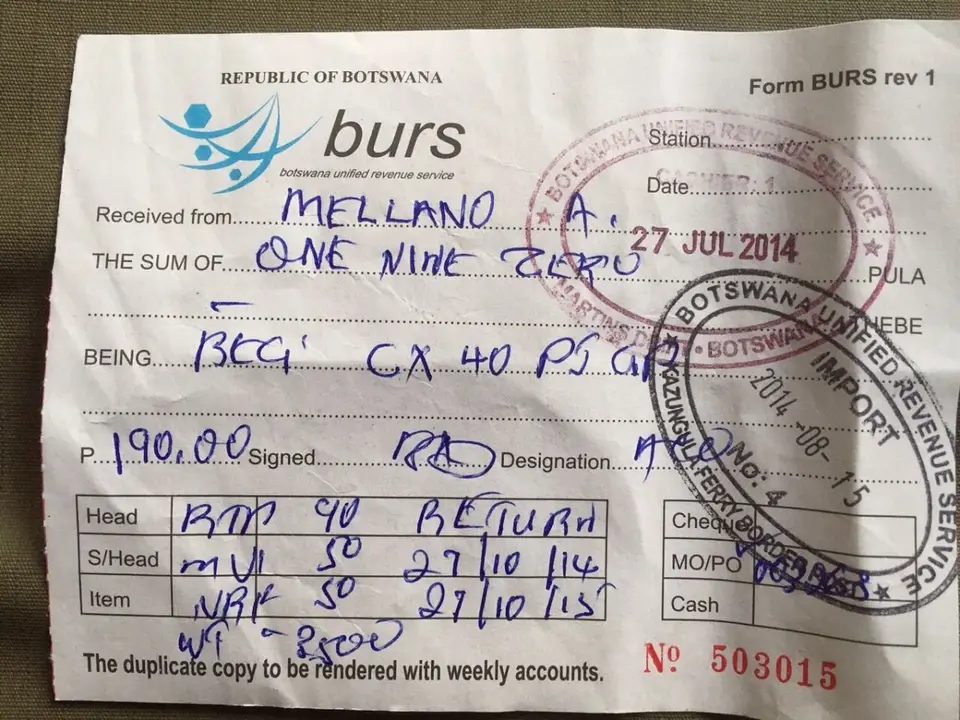 REPUBLIC OF BOTSWANA
Form BURS rev 1
burs
botswana unified revenue service
Station
Date
CASHIER: 1
BOTSWANA UNIFIED REVENUE SERVICE
27 JUL 2014
MARTINS DRIFT • BOTSWANA
Received from MELLANO A.
THE SUM OF ONE NINE ZERO PULA
THEBE
BEING CX 40 PS GP
BOTSWANA UNIFIED REVENUE SERVICE
IMPORT
2014-08-15
No: 4
KAZUNGULA FERRY BORDER POST
P 190.00 Signed Designation
Head 90 RETURN
Cheque
S/Head 50 27/10/14
MO/PO
Item 50 27/10/15
Cash
WT - 8500
The duplicate copy to be rendered with weekly accounts.
Nº 503015